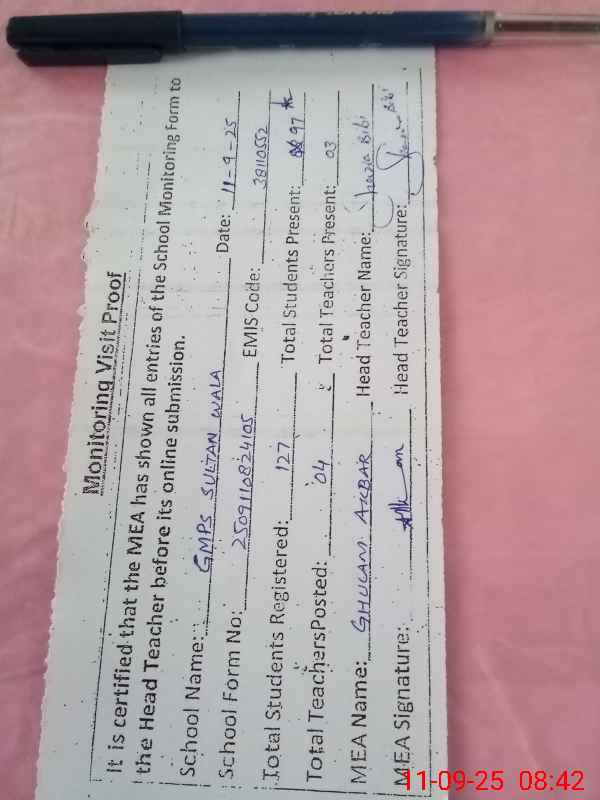 Monitoring Visit Proof
It is certified that the MEA has shown all entries of the School Monitoring Form to
the Head Teacher before its online submission.
School Name: GMPS SULTAN WALA Date: 11-9-25
School Form No: 2509110824105 EMIS Code: 38110552
Total Students Registered: 127 Total Students Present: 97
Total TeachersPosted: 04 Total Teachers Present: 03
MEA Name: GHULAM AKBAR Head Teacher Name: Shazia Bibi
MEA Signature: Head Teacher Signature: Bibi
11-09-25 08:42